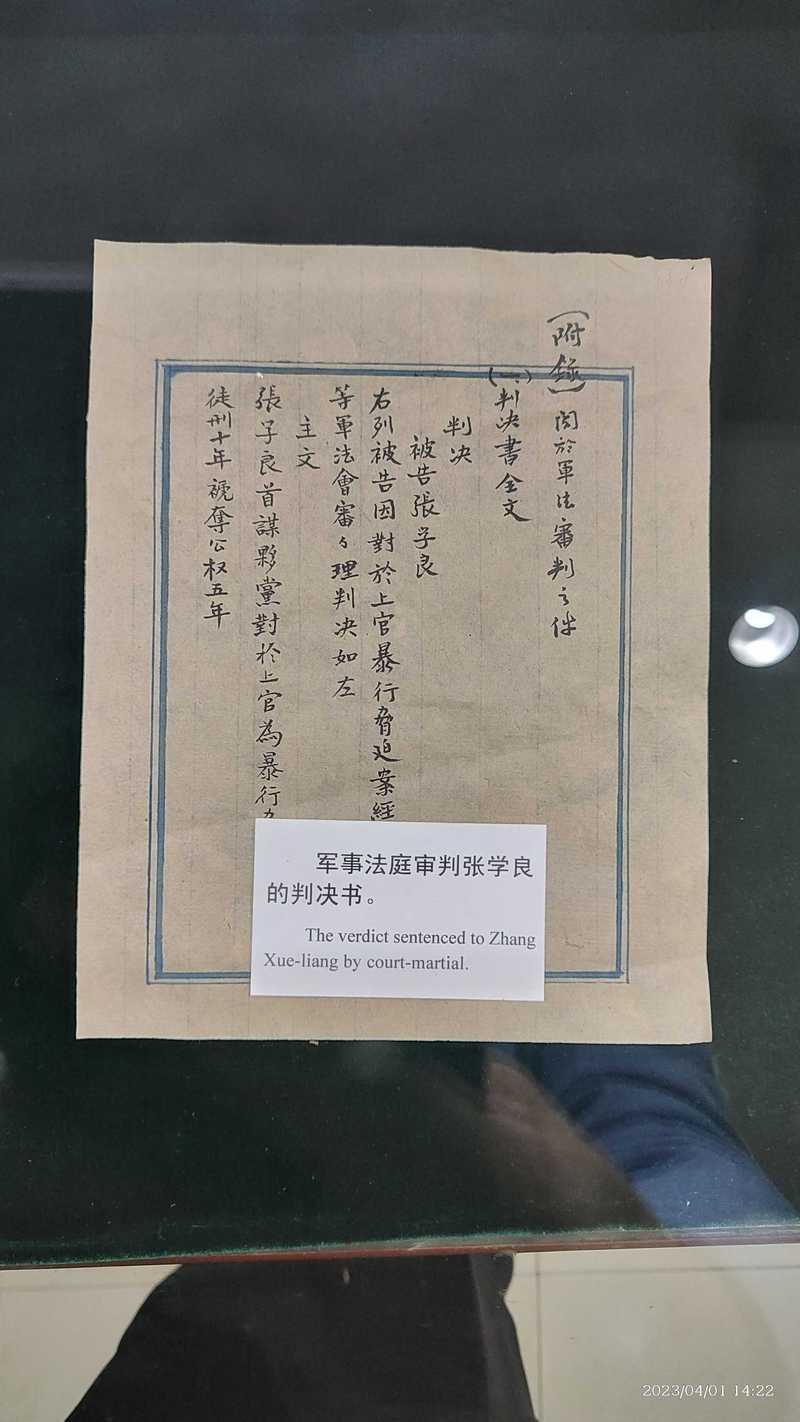 （附錄）関於軍法審判之件
（一）判決書全文
判决
被告張学良
右列被告因對於上官暴行脅迫案經
等軍法會審々理判决如左
主文
張子良首謀夥黨對於上官為暴行
徒刑十年褫奪公权五年
军事法庭审判张学良
的判决书。
The verdict sentenced to Zhang
Xue-liang by court-martial.
2023/04/01 14:22